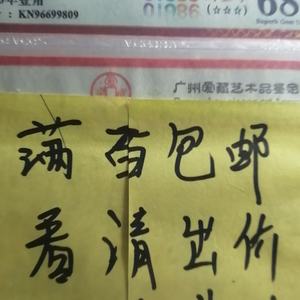 : KN96699809
01986
68
Superb Gem
广州爱藏艺术品鉴定
满百包邮
看清出价